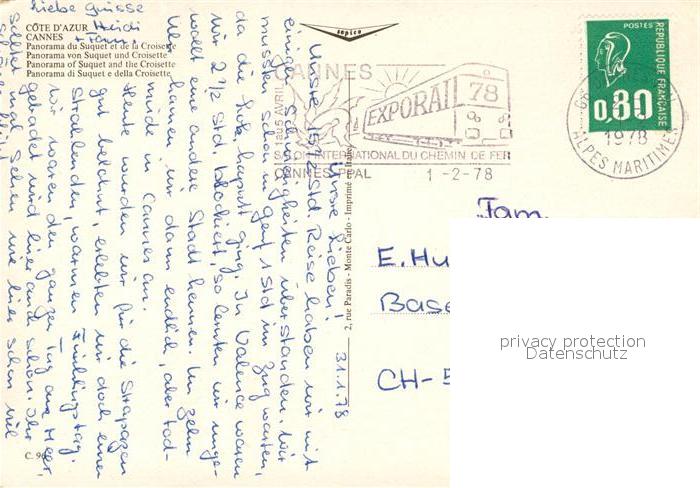 CÔTE D'AZUR
CANNES
Panorama du Suquet et de la Croisette
Panorama von Suquet und Croisette
Panorama of Suquet and the Croisette
Panorama di Suquet e della Croisette
C. 96
sapico
2, rue Paradis - Monte Carlo - Imprimé en Italie
CANNES
EXPORAIL 78
AVRIL
SALON INTERNATIONAL DU CHEMIN DE FER
CANNES PPAL 1-2-78
POSTES
REPUBLIQUE FRANÇAISE
0,80
1978
ALPES MARITIMES
31.1.78
Unsre Lieben!
Unsre 15 1/2 Std. Reise haben wir mit
einigen Schwierigkeiten überstanden. Wir
mussten schon in Genf 1 Std im Zug warten,
da die Lok. kaputt ging. In Valence waren
wir 2 1/2 Std. blockiert, so lernten wir unge-
wollt eine andere Stadt kennen. Um zehn
Uhr kamen wir dann endlich, aber tod-
müde in Cannes an.
Heute wurden wir für die Strapazen
gut belohnt, erlebten wir doch einen
strahlenden, warmen Frühlingstag.
Wir waren den ganzen Tag am Meer,
gebadet wird hier auch schon. Ihr
solltet mal sehen wie hier schon viel
Liebe Grüsse
Heidi
Fam.
E. Hu
Base
CH-
privacy protection
Datenschutz